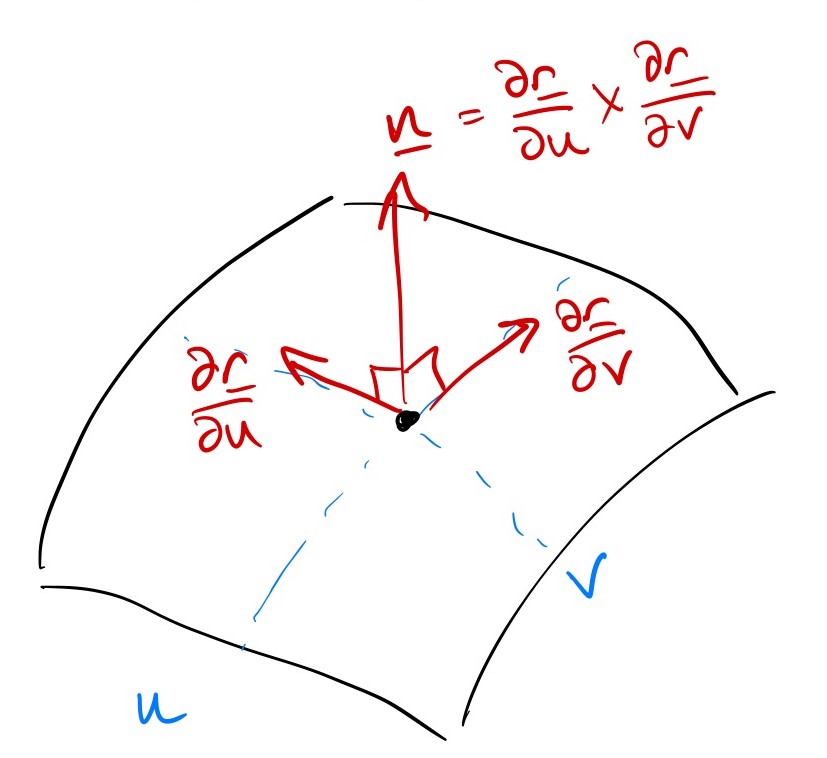 n = ∂r/∂u × ∂r/∂v
∂r/∂v
∂r/∂u
v
u